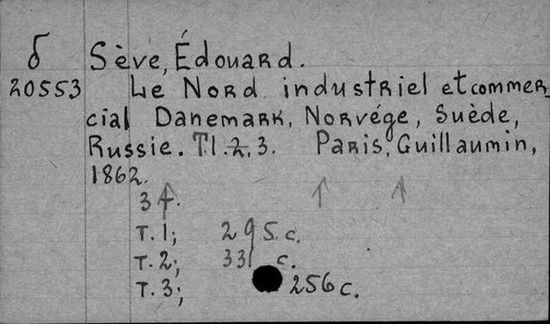 б Sève, Édouard.
20553 Le Nord industriel et commer-
cial Danemark, Norvége, Suède,
Russie. T1.2,3. Paris, Guillaumin,
1862.
3 т.
т.1; 295 с.
т.2; 331 с.
т.3; 256 с.